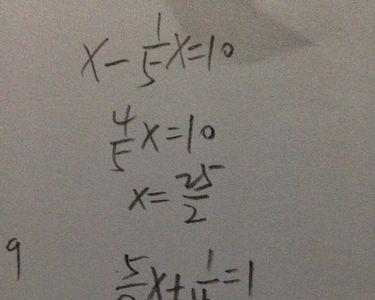 x - 1/5 x = 10
4/5 x = 10
x = 25/2
9
5/ x + 1/ = 1